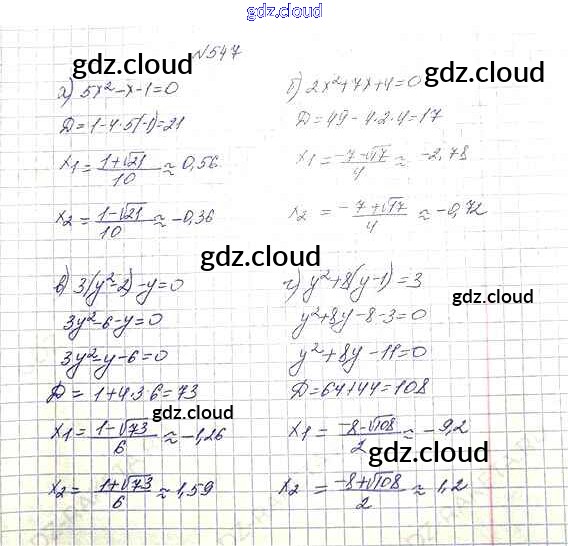 gdz.cloud
№547
gdz.cloud
а) 5x²-x-1=0
D=1-4·5(-1)=21
x₁=(1+√21)/10≈0,56
x₂=(1-√21)/10≈-0,36
б) 2x²+7x+4=0
gdz.cloud
D=49-4·2·4=17
gdz.cloud
x₁=(-7-√17)/4≈-2,78
x₂=(-7+√17)/4≈-0,72
gdz.cloud
gdz.cloud
в) 3(y²-2)-y=0
3y²-6-y=0
3y²-y-6=0
D=1+4·3·6=73
gdz.cloud
x₁=(1-√73)/6≈-1,26
x₂=(1+√73)/6≈1,59
г) y²+8(y-1)=3
gdz.cloud
y²+8y-8-3=0
y²+8y-11=0
D=64+44=108
x₁=(-8-√108)/2≈-9,2
gdz.cloud
x₂=(-8+√108)/2≈1,2